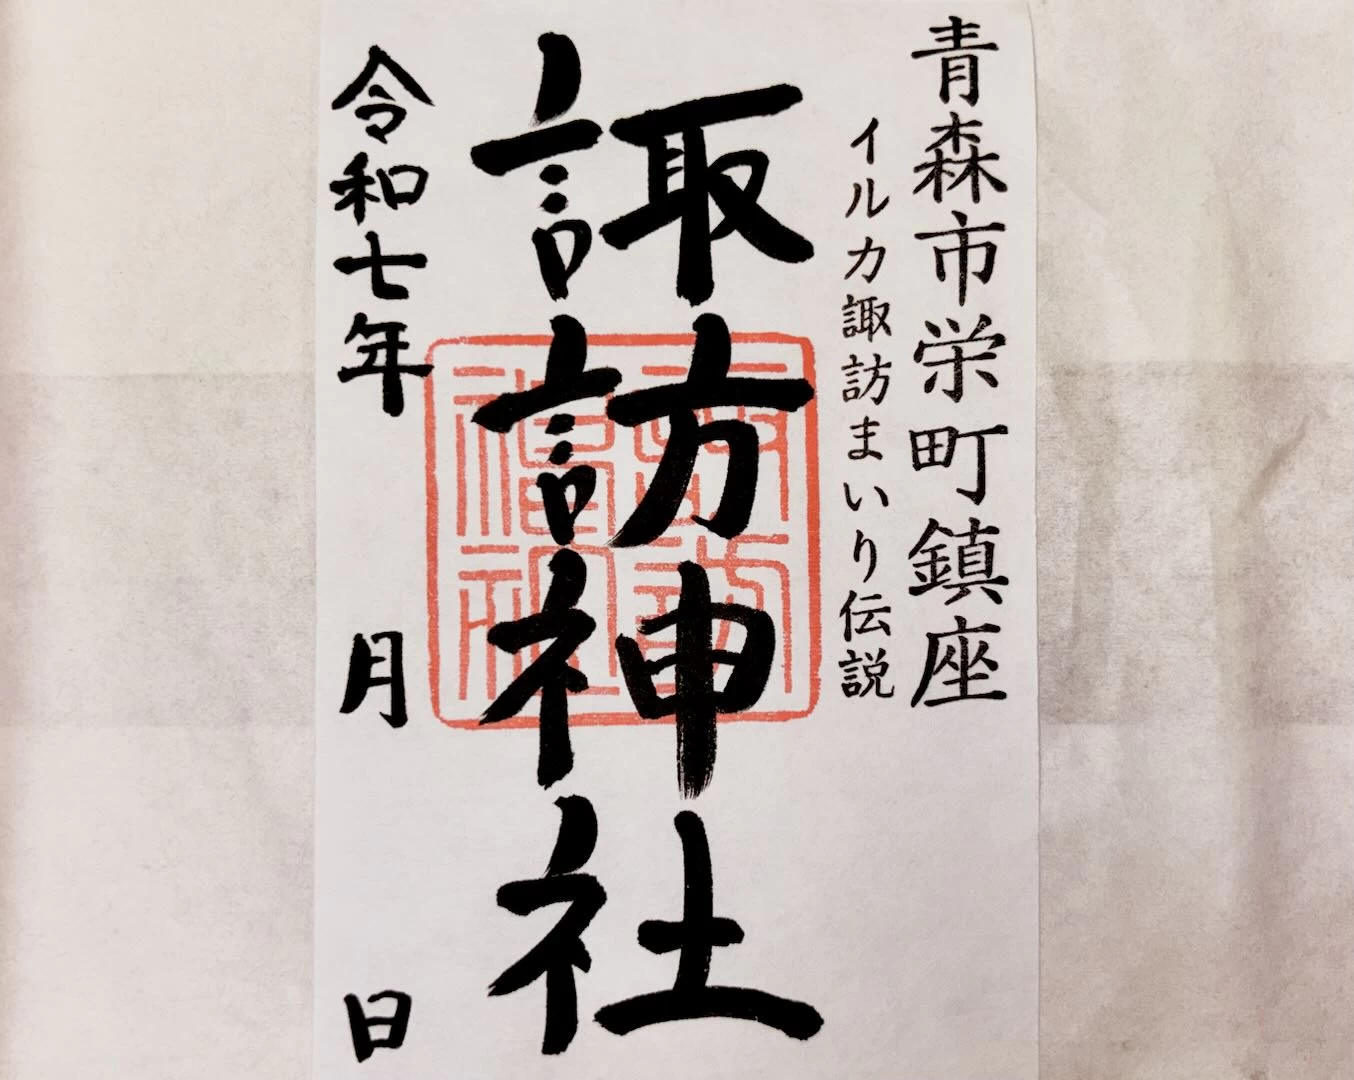 青森市栄町鎮座
イルカ諏訪まいり伝説
諏訪神社
令和七年 月 日